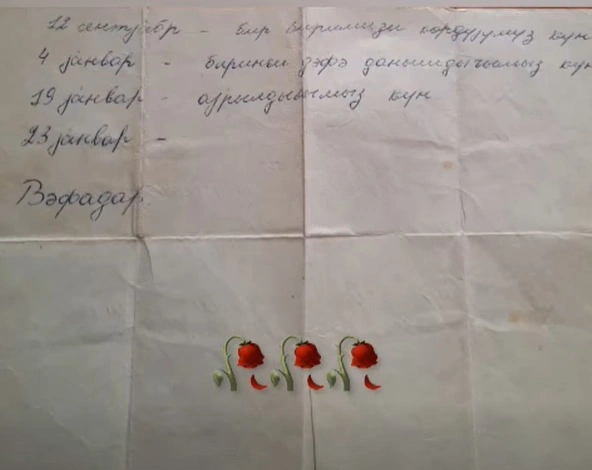 12 сентјабр - бир биримизи кордујумуз кун
4 јанвар - биринҹи дәфә данышдығымыз кун
19 јанвар - ајрылдығымыз кун
23 јанвар -
Вәфадар